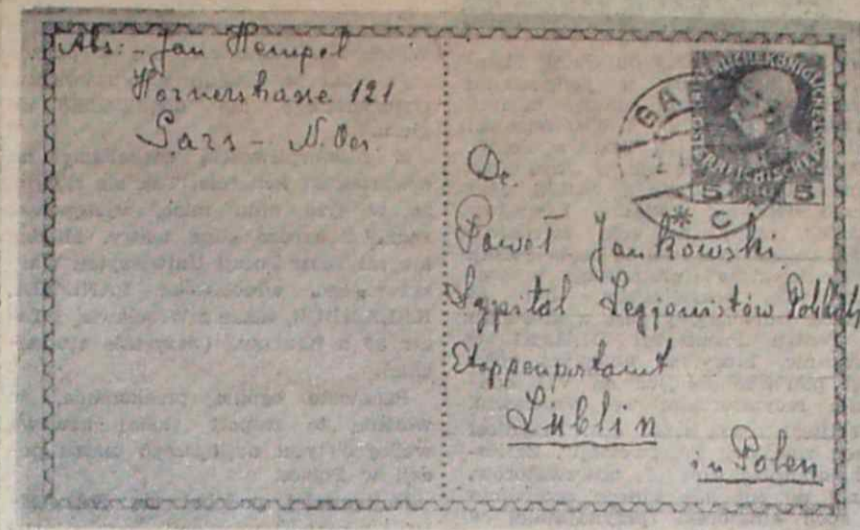 Abs: - Jan Hempel
Hornerstrasse 121
Gars - N. Oes.
GA
C
5 5
Dr.
Paweł Jankowski
Szpital Legjonistów Polskich
Etappenpostamt
Lublin
in Polen